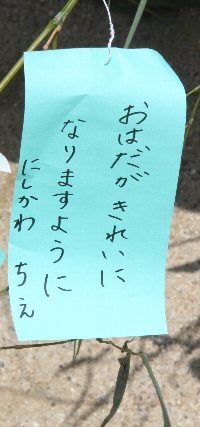 おはだが きれいに
なりますように
にしかわ ちえ